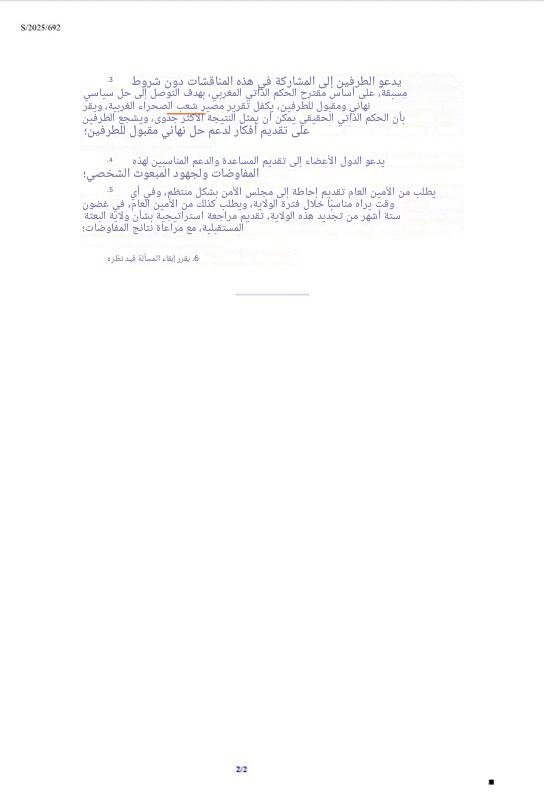 S/2025/692
3. يدعو الطرفين إلى المشاركة في هذه المناقشات دون شروط
مسبقة، على أساس مقترح الحكم الذاتي المغربي، بهدف التوصل إلى حل سياسي
نهائي ومقبول للطرفين، يكفل تقرير مصير شعب الصحراء الغربية، ويقر
بأن الحكم الذاتي الحقيقي يمكن أن يمثل النتيجة الأكثر جدوى، ويشجع الطرفين
على تقديم أفكار لدعم حل نهائي مقبول للطرفين؛
4. يدعو الدول الأعضاء إلى تقديم المساعدة والدعم المناسبين لهذه
المفاوضات ولجهود المبعوث الشخصي؛
5. يطلب من الأمين العام تقديم إحاطة إلى مجلس الأمن بشكل منتظم، وفي أي
وقت يراه مناسبًا خلال فترة الولاية، ويطلب كذلك من الأمين العام، في غضون
ستة أشهر من تجديد هذه الولاية، تقديم مراجعة استراتيجية بشأن ولاية البعثة
المستقبلية، مع مراعاة نتائج المفاوضات؛
6. يقرر إبقاء المسألة قيد نظره
2/2